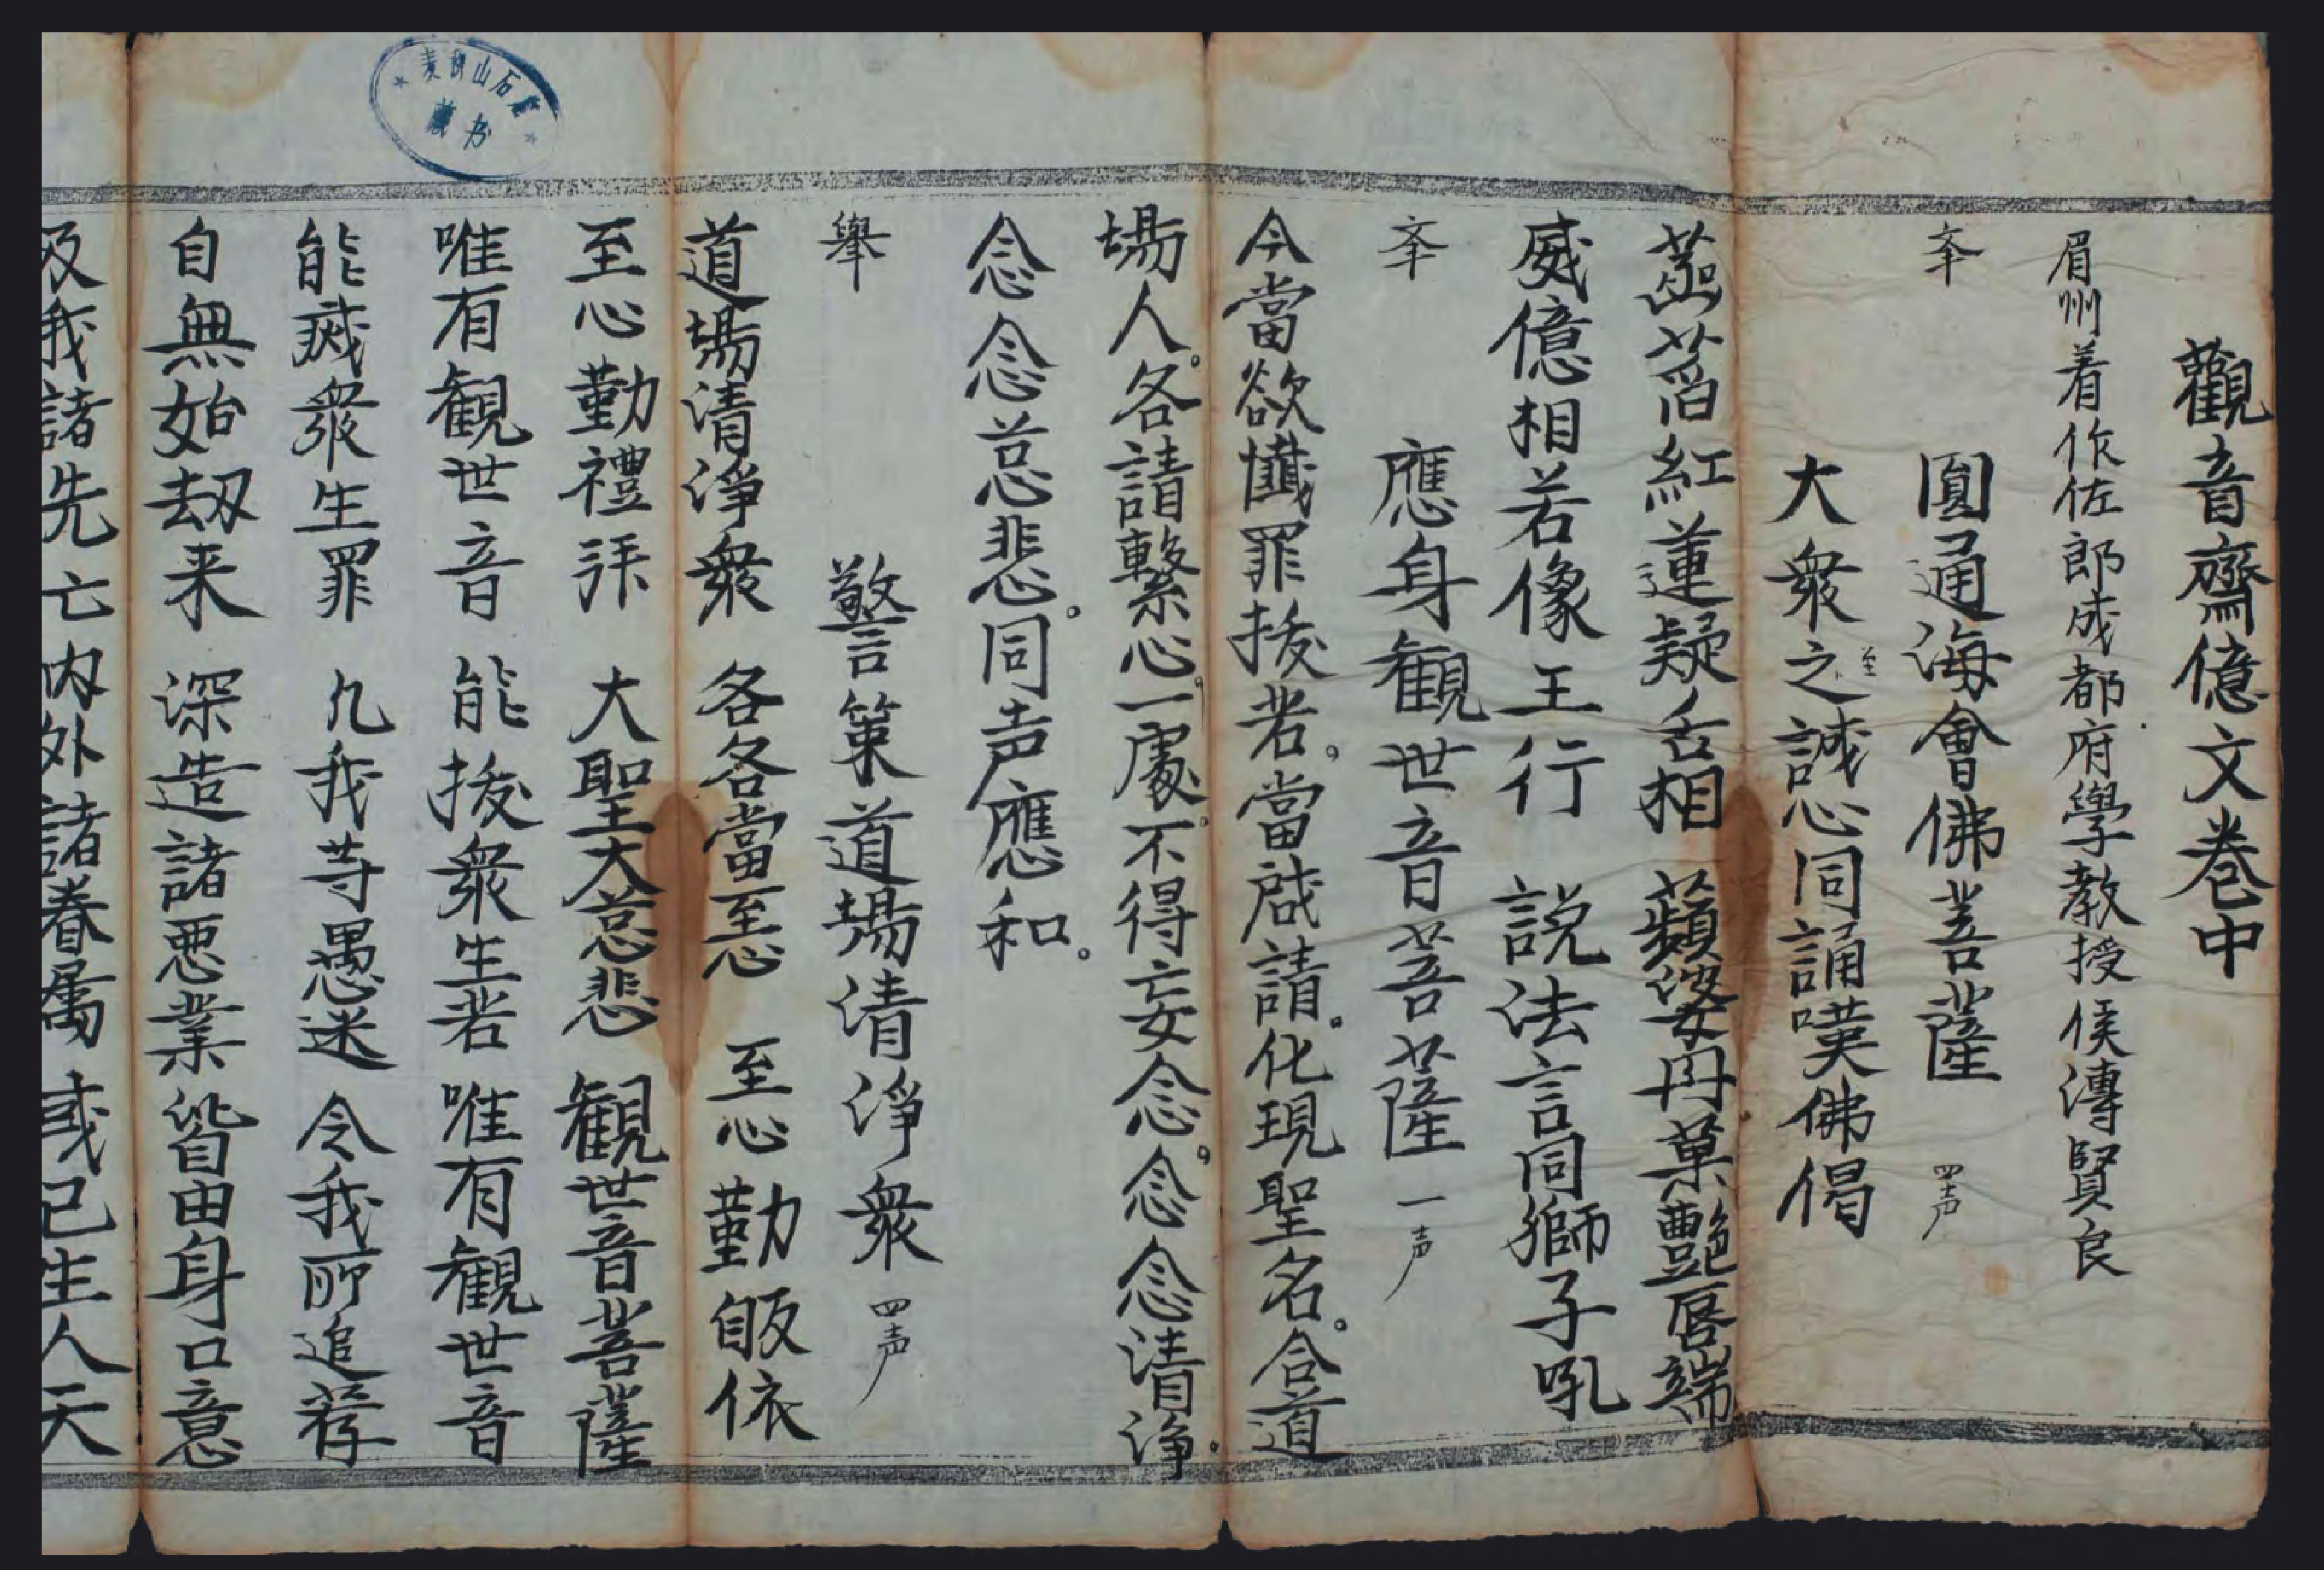 觀音齋億文卷中
眉州着作佐郎成都府學教授侯漙賢良
㪯 圓通海會佛菩薩 四声
大衆之至誠心同誦嘆佛偈
菡萏紅蓮疑舌相 蘋婆丹菓艷唇端
威億相若像王行 説法言同獅子吼
㪯 應身観世音菩薩 一声
今當欲懺罪拔者。當啟請。化現聖名。合道
場人。各請繫心一處。不得妄念。念念清净。
念念慈悲。同声應和。
舉 警策道場清淨衆 四声
道場清淨衆 各各當至心 至心勤皈依
至心勤禮拜 大聖大慈悲 観世音菩薩
唯有観世音 能拔衆生者 唯有観世音
能滅衆生罪 凢我等愚迷 令我所追荐
自無始刼来 深造諸悪業 皆由身口意
及我諸先亡 内外諸眷属 或已生人天
麦积山石窟
藏书